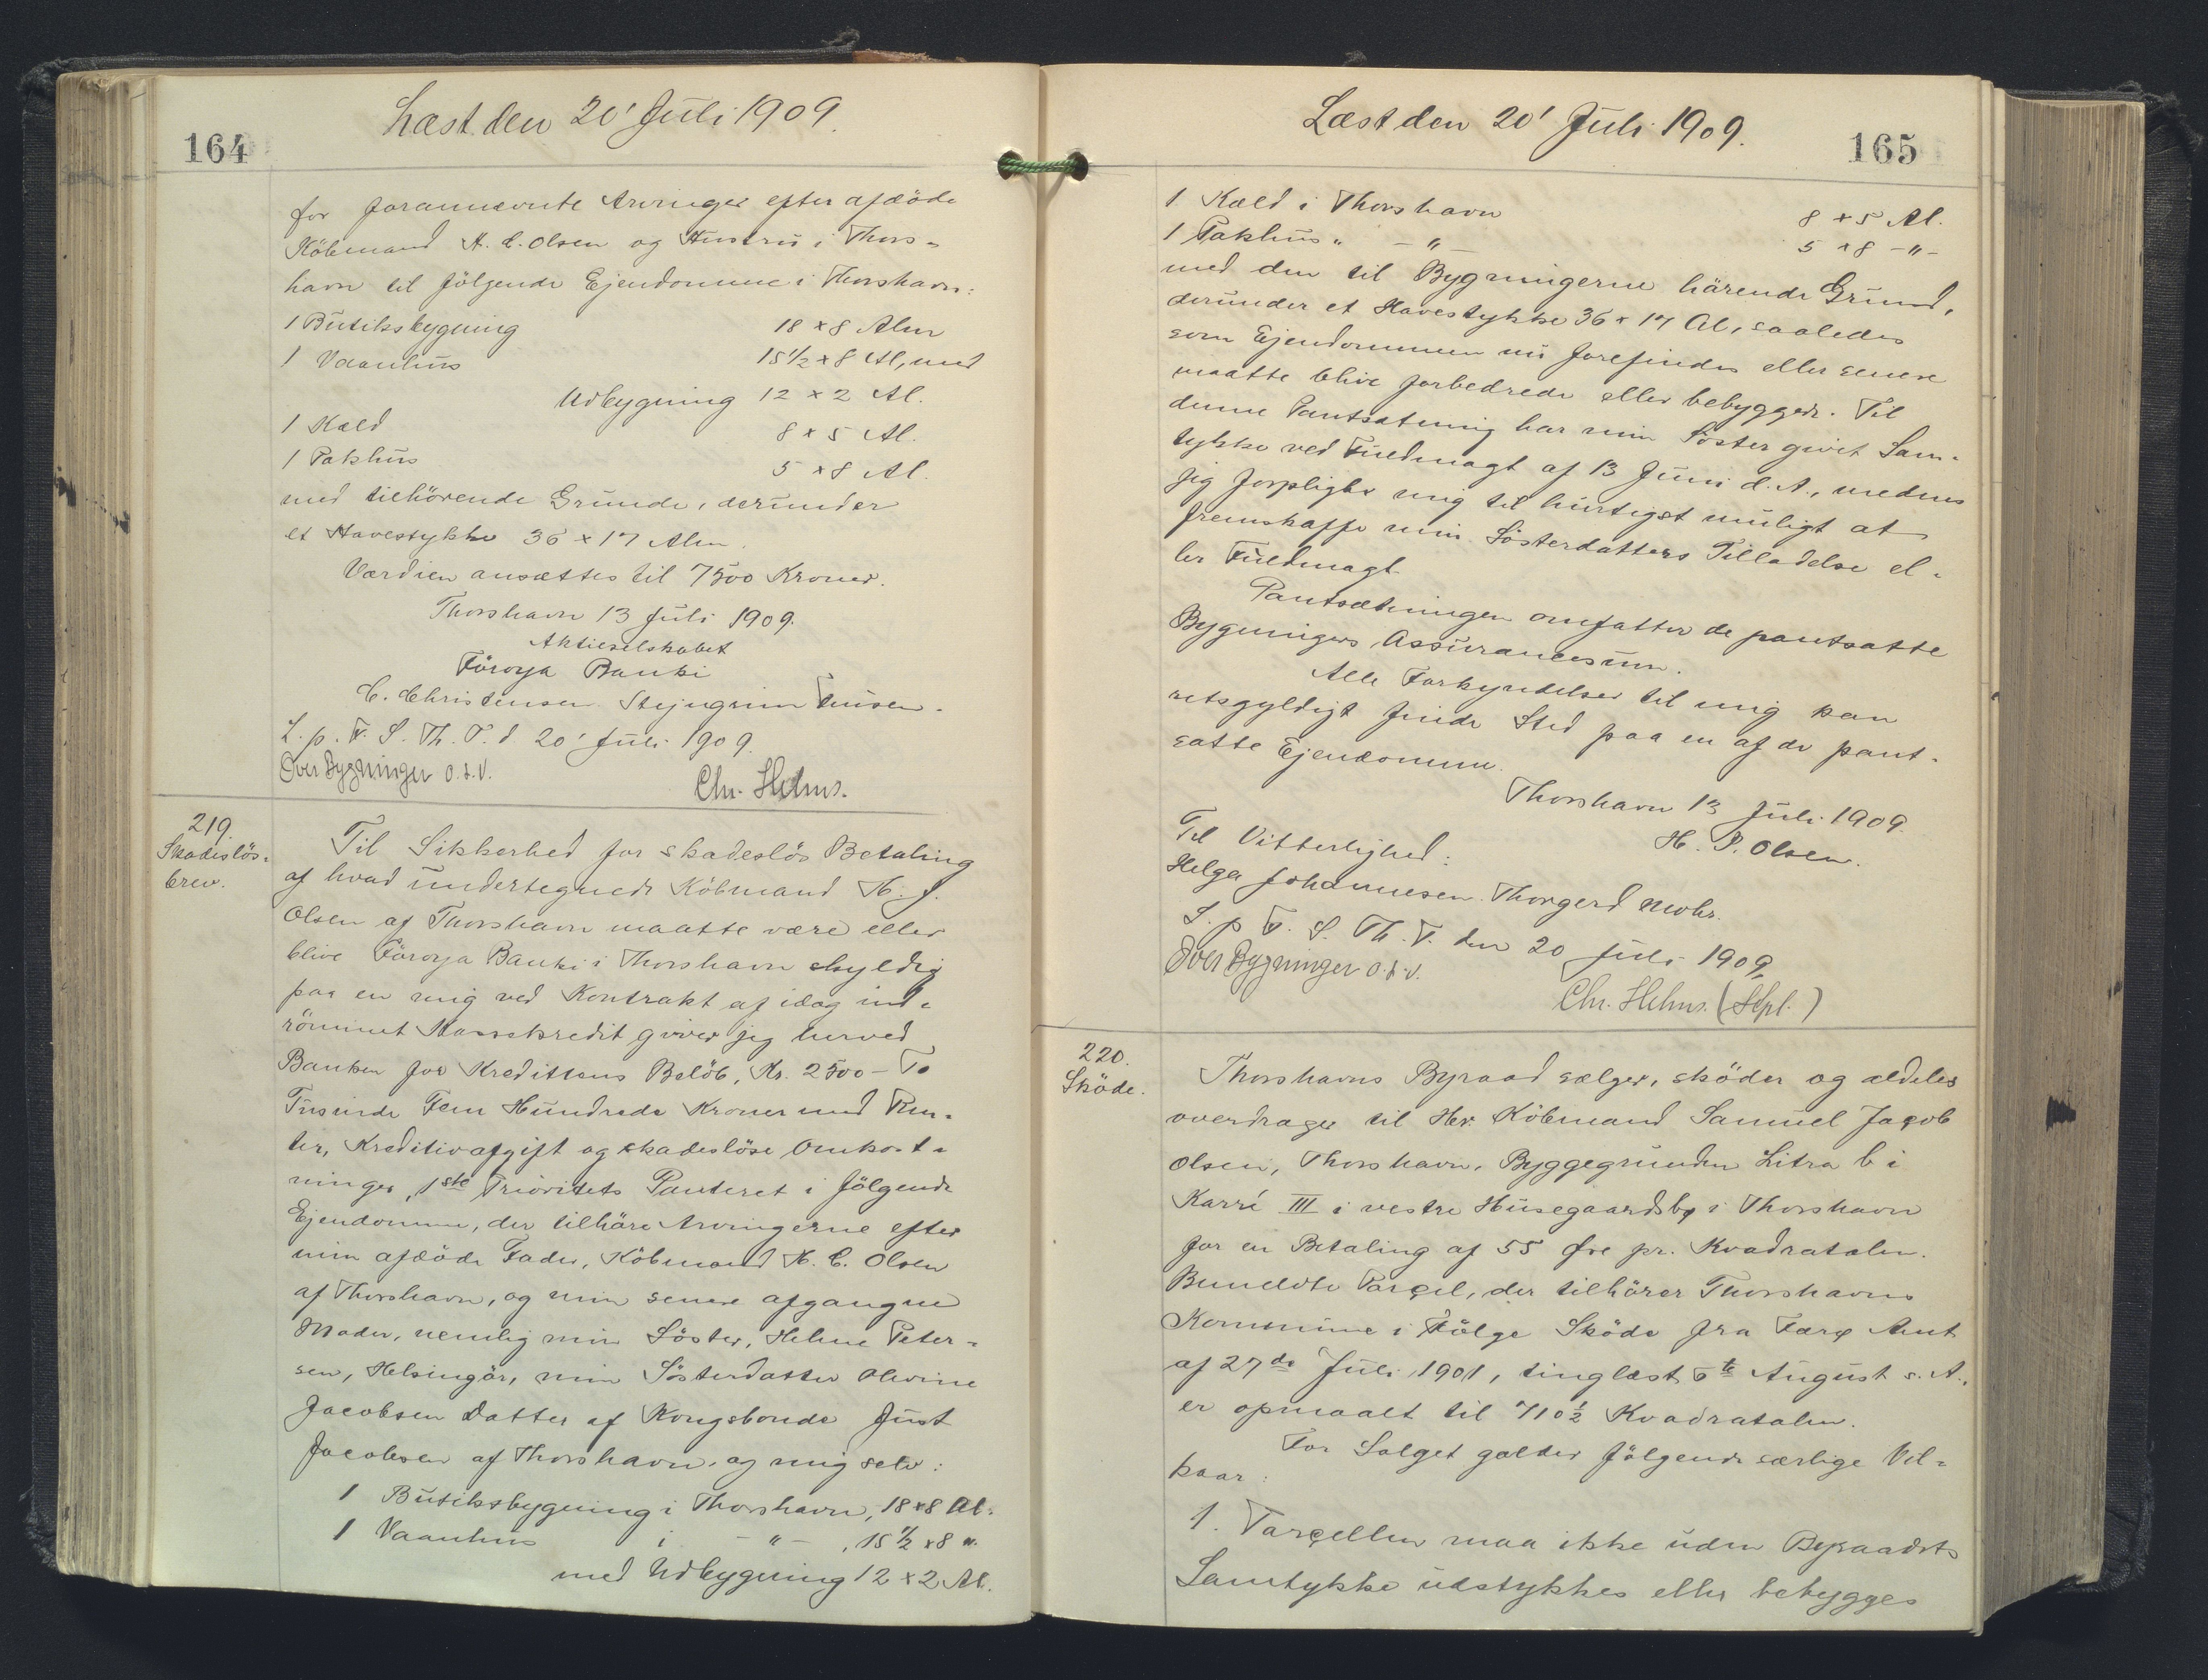 Læst den 20' Juli 1909.
164
for forannævnte Arvinger efter afdöde
Köbmand H. C. Olsen og Hustru i Thors-
havn til fölgende Ejendomme i Thorshavn:
1 Butiksbygning 18 x 8 Alen
1 Vaanhus 15 1/2 x 8 Al, med
Udbygning 12 x 2 Al.
1 Kæld 8 x 5 Al.
1 Pakhus 5 x 8 Al.
med tilhörende Grunde, derunder
et Havestykke 36 x 17 Alen.
Værdien ansættes til 7500 Kroner.
Thorshavn 13 Juli 1909.
Aktieselskabet
Föroya Banki
C. Christensen Stejngrim
L. p. F. S. Th. T. d. 20' Juli 1909.
Over Bygninger o.s.v.
Chr. Helms.
219.
Skadeslös-
brev.
Til Sikkerhed for skadeslös Betaling
af hvad undertegnede Köbmand H. J.
Olsen af Thorshavn maatte være eller
blive Föroya Banki i Thorshavn skyldig
paa en mig ved Kontrakt af idag ind-
römmet Kassekredit giver jeg herved
Banken for Kredittens Belöb, Kr. 2500 – To
Tusinde Fem Hundrede Kroner med Ren-
ter, Kreditivafgift og skadeslöse Omkost-
ninger, 1ste Prioritets Panteret i fölgende
Ejendomme, der tilhöre Arvingerne efter
min afdöde Fader, Köbmand H. C. Olsen
af Thorshavn, og min senere afgangne
Moder, nemlig min Söster, Helene Peter-
sen, Helsingör, min Sösterdatter Olevine
Jacobsen Datter af Kongsbonde Just
Jacobsen af Thorshavn, og mig selv:
1 Butiksbygning i Thorshavn, 18 x 8 Al.
1 Vaanhus i – " – , 15 1/2 x 8 "
med Udbygning 12 x 2 Al.
Læst den 20' Juli 1909.
165
1 Kæld i Thorshavn 8 x 5 Al.
1 Pakhus " – " – 5 x 8 – " –
med den til Bygningerne hörende Grund,
derunder et Havestykke 36 x 17 Al, saaledes
som Ejendommen nu forefindes eller senere
maatte blive forbedrede eller bebyggede. Til
denne Pantsætning har min Söster givet Sam-
tykke ved Fuldmagt af 13 Juni d. A., medens
jeg forpligter mig til hurtigst muligt at
fremskaffe min Sösterdatters Tilladelse el-
ler Fuldmagt.
Pantsætningen omfatter de pantsatte
Bygningers Assurancesum.
Alle Forkyndelser til mig kan
retsgyldigt finde Sted paa en af de pant-
satte Ejendomme.
Thorshavn 13 Juli 1909
H. J. Olsen.
Til Vitterlighed:
Helga Johannesen. Thorgerd Mohr.
L. p F. S. Th. T. den 20 Juli 1909,
Over Bygninger o.s.v.
Chr. Helms. (Sspl.)
220.
Sköde.
Thorshavns Byraad sælger, sköder og aldeles
overdrager til Hr. Köbmand Samuel Jacob
Olsen, Thorshavn, Byggegrunden Litra b i
Karré III i vestre Husegaardsbø i Thorshavn
for en Betaling af 55 Øre pr. Kvadratalen.
Bemeldte Parcel, der tilhörer Thorshavns
Kommune i Fölge Sköde fra Færø Amt
af 27de Juli 1901, tinglæst 6te August s. A.,
er opmaalt til 710 1/2 Kvadratalen.
For Salget gælder fölgende særlige Vil-
kaar:
1. Parcellen maa ikke uden Byraadets
Samtykke udstykkes eller bebygges